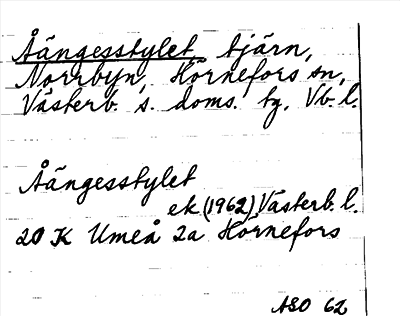 Åängesstylet tjärn,
Norrbyn, Hörnefors sn,
Västerb. s. doms. tg, Vb. l.
Åängesstylet
ek (1962) Västerb. l.
20 K Umeå 2a Hörnefors
ASO 62